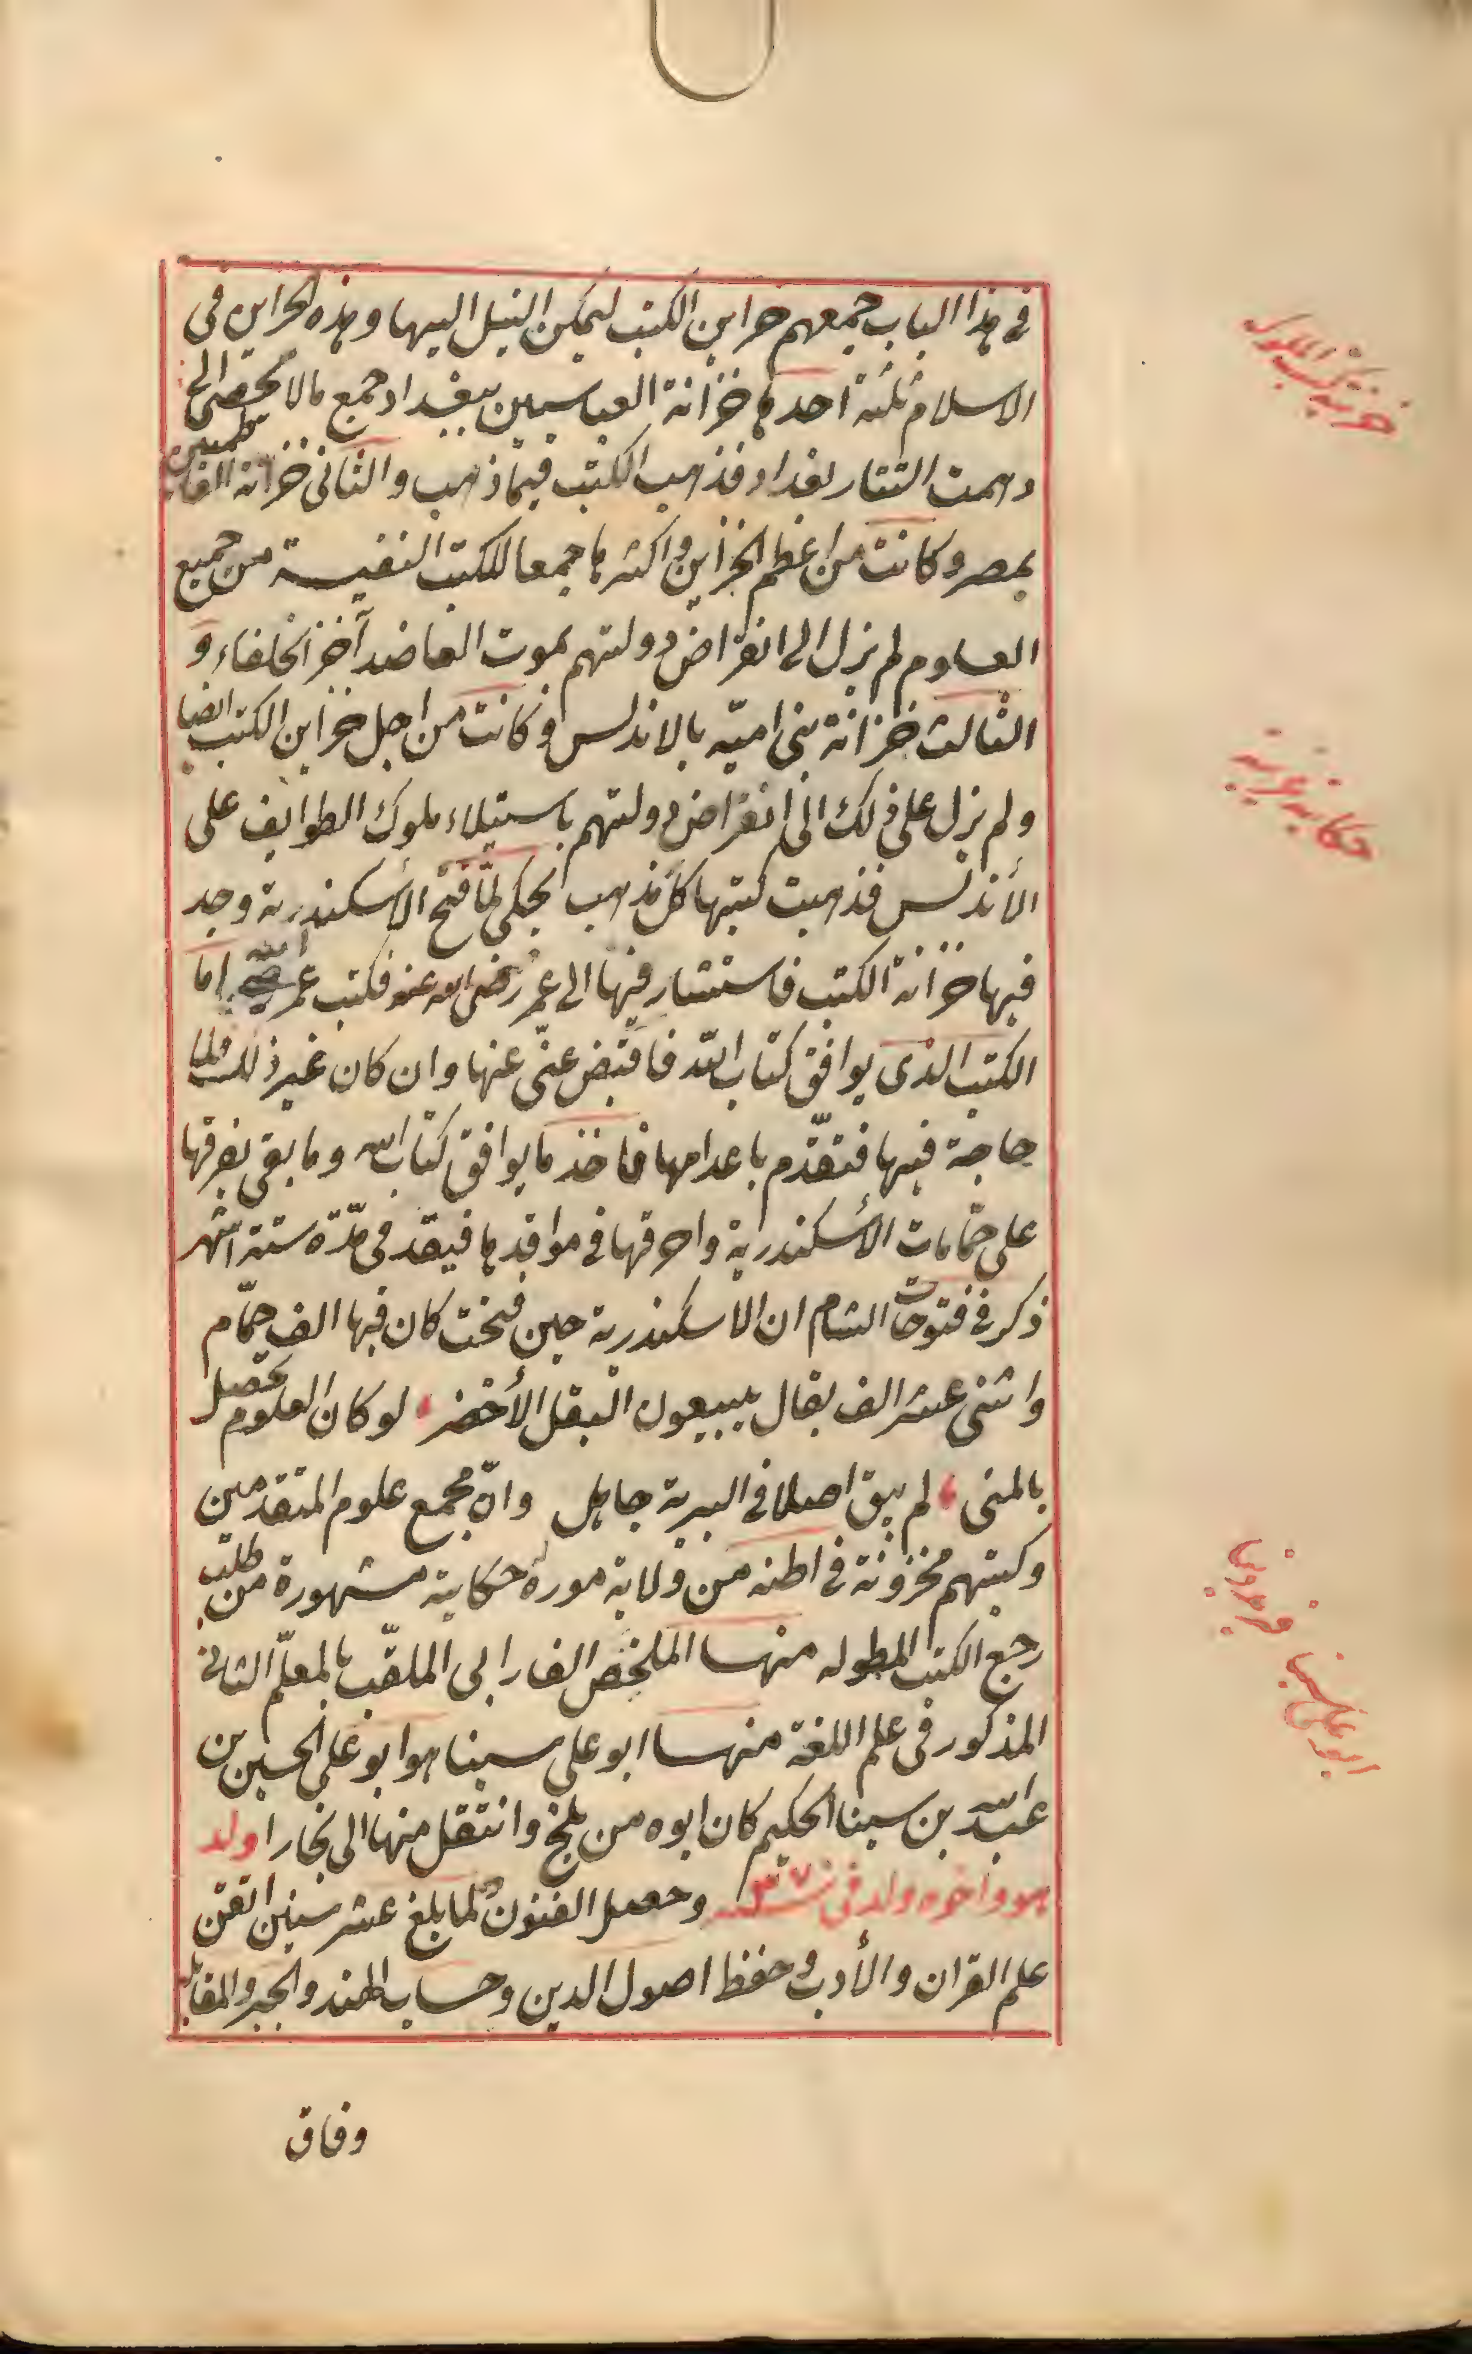 في هذا الباب جمعهم خزاين الكتب ليمكن النيل اليها وهذه الخزاين في
الاسلام ثلثة احدها خزانة العباسيين ببغداد جمع مالا تحصى الى
دهمت التتار بغداد فذهب الكتب فيما ذهب والثانى خزانة الفاطميين
بمصر وكانت من اعظم الخزاين واكثرها جمعا للكتب النفيسة من جميع
العلوم لم يزل الى انقراض دولتهم بموت العاضد آخر الخلفاء و
الثالث خزانة بنى اميّه بالاندلس وكانت من اجل خزاين الكتب ايضا
ولم يزل على ذلك الى انقراض دولتهم باستيلاء ملوك الطوايف على
الأندلس فذهبت كتبها كل مذهب يحكى لمّا فتح الأسكندرية وجد
فيها خزانة الكتب فاستشار فيها الى عمر رضى الله عنه فكتب عمر اما
الكتب الذى يوافق كتاب الله فاقبض عنى عنها وان كان غير ذلك فلا
حاجة فيها فتقدّم باعدامها فاخذ ما يوافق كتاب الله وما بقى يفرقها
على حمّامات الأسكندرية واحرقها في مواقدها فيقد فى مدّة ستة اشهر
ذكر في فتوحات الشام ان الاسكندرية حين فتحت كان فيها الف حمّام
واثنى عشر الف بقال يبيعون البقل الأخضر لو كان العلوم تحصل
بالمنى لم يبق اصلا في البرية جاهل وان مجمع علوم المتقدمين
وكتبهم مخزونة في اطنه من ولاية موره حكاية مشهورة من طلب
رجع الكتب المطوله منها الملخص الفارابى الملقّب بالمعلّم الثانى
المذكور فى علم اللغة منها ابو على سينا هو ابو على الحسين بن
عبد الله بن سينا الحكيم كان ابوه من بلخ وانتقل منها الى بخارا ولد
هو واخوه ولد فى وحصل الفنون ولما بلغ عشر سنين اتقن
علم القران والأدب وحفظ اصول الدين وحساب الهند والجبر والمقابله
وفاق
خزينة كتب الملوك
حكاية غريبة
ابو على سينا